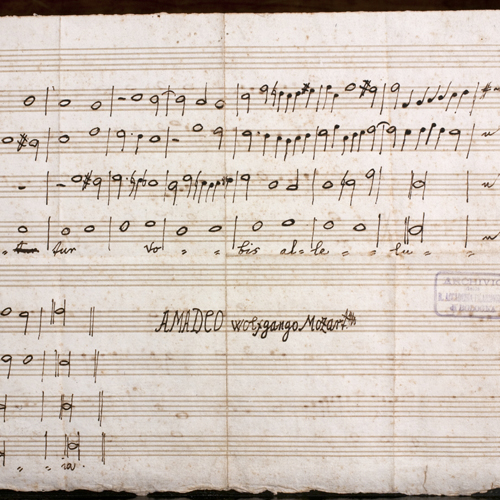 tur vo - - bis al - le - lu - -
AMADEO wolfgango Mozart
ARCHIVIO
ia.